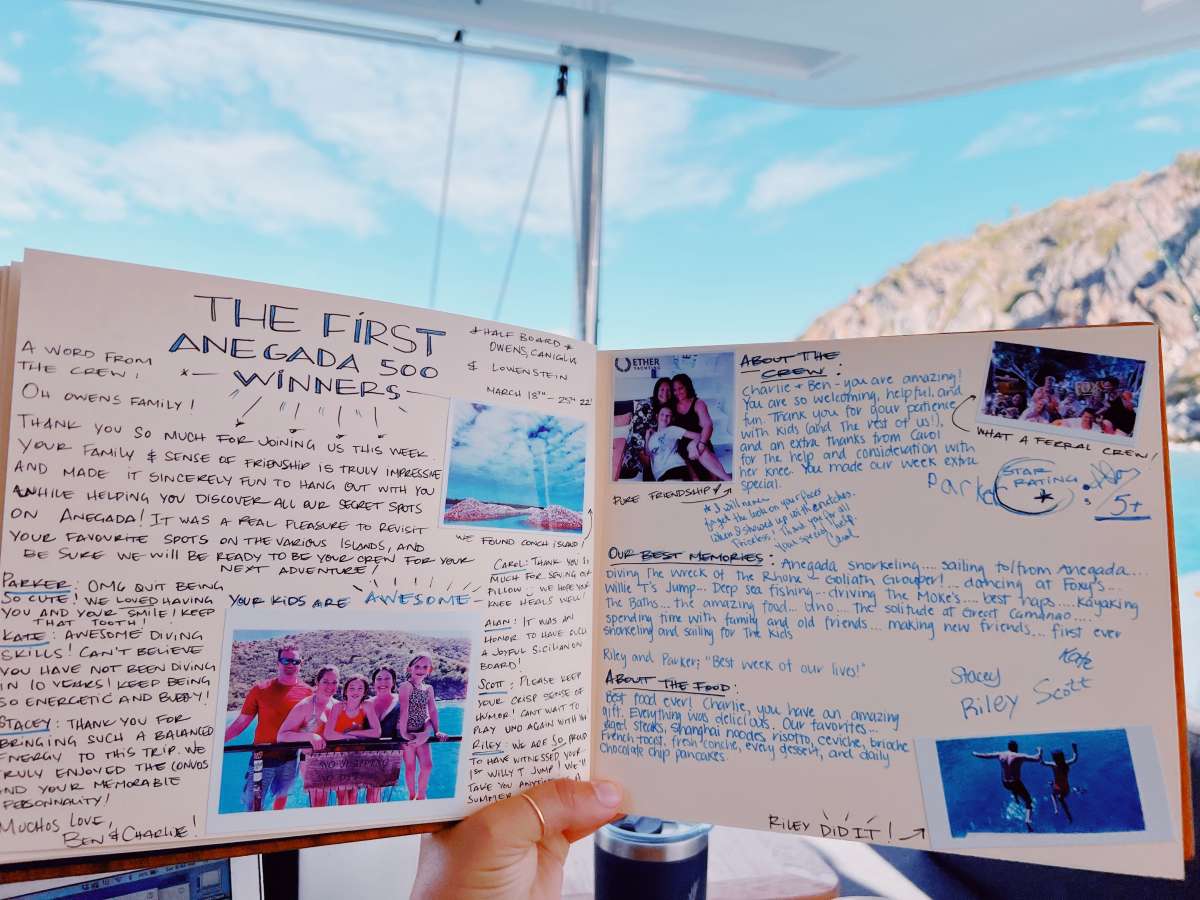 THE FIRST
ANEGADA 500
WINNERS
* HALF BOARD *
OWENS, CANIGLIA
& LOWENSTEIN
MARCH 18TH - 25TH 22'
A WORD FROM
THE CREW!
OH OWENS FAMILY!
THANK YOU SO MUCH FOR JOINING US THIS WEEK.
YOUR FAMILY & SENSE OF FRIENSHIP IS TRULY IMPRESSIVE
AND MADE IT SINCERELY FUN TO HANG OUT WITH YOU
WHILE HELPING YOU DISCOVER ALL OUR SECRET SPOTS
ON ANEGADA! IT WAS A REAL PLEASURE TO REVISIT
YOUR FAVOURITE SPOTS ON THE VARIOUS ISLANDS, AND
BE SURE WE WILL BE READY TO BE YOUR CREW FOR YOUR
NEXT ADVENTURE!
WE FOUND CONCH ISLAND!
PARKER: OMG QUIT BEING
SO CUTE! WE LOVED HAVING
YOU AND YOUR SMILE! KEEP
THAT TOOTH!
KATE: AWESOME DIVING
SKILLS! CAN'T BELIEVE
YOU HAVE NOT BEEN DIVING
IN 10 YEARS! KEEP BEING
SO ENERGETIC AND BUBBY!
STACEY: THANK YOU FOR
BRINGING SUCH A BALANCED
ENERGY TO THIS TRIP. WE
TRULY ENJOYED THE CONVOS
AND YOUR MEMORABLE
PERSONNALITY!
MUCHOS LOVE,
BEN & CHARLIE!
YOUR KIDS ARE AWESOME
CAROL: THANK YOU SO
MUCH FOR SEWING OUR
PILLOW - WE HOPE YOUR
KNEE HEALS WELL!
ALAN: IT WAS AN
HONOR TO HAVE SUCH
A JOYFUL SICILIAN ON
BOARD!
SCOTT: PLEASE KEEP
YOUR CRISP SENSE OF
HUMOR! CANT WAIT TO
PLAY UNO AGAIN WITH YOU
RILEY: WE ARE SO PROUD
TO HAVE WITNESSED YOUR
1ST WILLY T JUMP! WE'LL
TAKE YOU ANYTIME
SUMMER
ETHER
YACHTING
PURE FRIENDSHIP
ABOUT THE
CREW:
Charlie + Ben - you are amazing!
You are so welcoming, helpful, and
fun. Thank you for your patience
with kids (and the rest of us!),
and an extra thanks from Carol
for the help and consideration with
her knee. You made our week extra
special.
* I will never
forget the look on your faces
when I showed up with crutches.
Priceless! Thank you for all
your special help.
Carol
FOXY'S
WHAT A FERRAL CREW!
Parker
STAR
RATING:
5+
OUR BEST MEMORIES: Anegada snorkeling.... sailing to/from Anegada....
Diving the Wreck of the Rhone - Goliath Grouper!... dancing at Foxy's....
Willie T's Jump... Deep sea fishing... driving the Moke's.... best naps.... kayaking
The Baths... the amazing food... Uno... The solitude at Great Camanao....
spending time with family and old friends... making new friends... first ever
snorkeling and sailing for the kids
Riley and Parker; "Best week of our lives!"
Stacey
Kate
Riley
Scott
ABOUT THE FOOD:
Best food ever! Charlie, you have an amazing
gift. Everything was delicious. Our favorites...
steaks, shanghai noodes, risotto, ceviche, brioche
French toast, fresh conche, every dessert, and daily
chocolate chip pancakes.
RILEY DID IT!